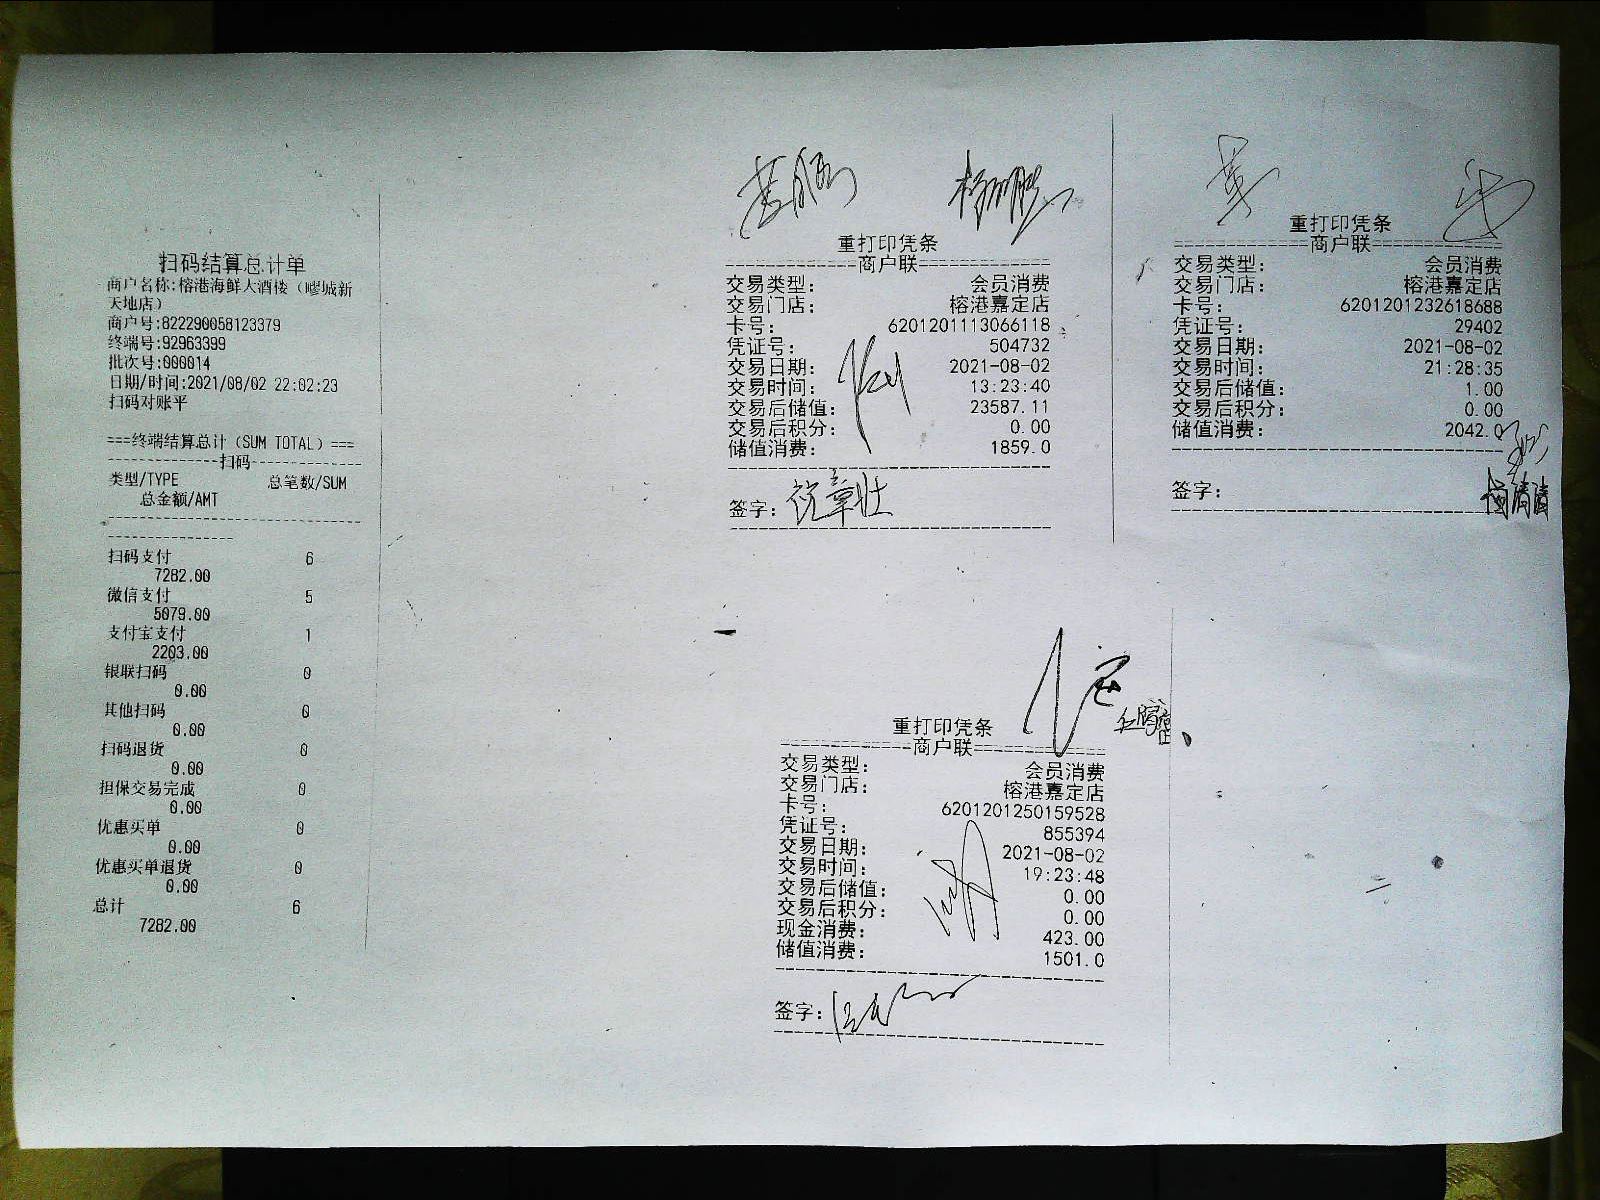 扫码结算总计单
商户名称:榕港海鲜大酒楼（疁城新
天地店）
商户号:822290058123379
终端号:92963399
批次号:000014
日期/时间:2021/08/02 22:02:23
扫码对账平
===终端结算总计（SUM TOTAL）===
扫码
类型/TYPE 总笔数/SUM
总金额/AMT
扫码支付 6
7282.00
微信支付 5
5079.00
支付宝支付 1
2203.00
银联扫码 0
0.00
其他扫码 0
0.00
扫码退货 0
0.00
担保交易完成 0
0.00
优惠买单 0
0.00
优惠买单退货 0
0.00
总计 6
7282.00
重打印凭条
商户联
交易类型: 会员消费
交易门店: 榕港嘉定店
卡号: 6201201113066118
凭证号: 504732
交易日期: 2021-08-02
交易时间: 13:23:40
交易后储值: 23587.11
交易后积分: 0.00
储值消费: 1859.0
签字:
重打印凭条
商户联
交易类型: 会员消费
交易门店: 榕港嘉定店
卡号: 6201201232618688
凭证号: 29402
交易日期: 2021-08-02
交易时间: 21:28:35
交易后储值: 1.00
交易后积分: 0.00
储值消费: 2042.0
签字:
重打印凭条
商户联
交易类型: 会员消费
交易门店: 榕港嘉定店
卡号: 6201201250159528
凭证号: 855394
交易日期: 2021-08-02
交易时间: 19:23:48
交易后储值: 0.00
交易后积分: 0.00
现金消费: 423.00
储值消费: 1501.0
签字: